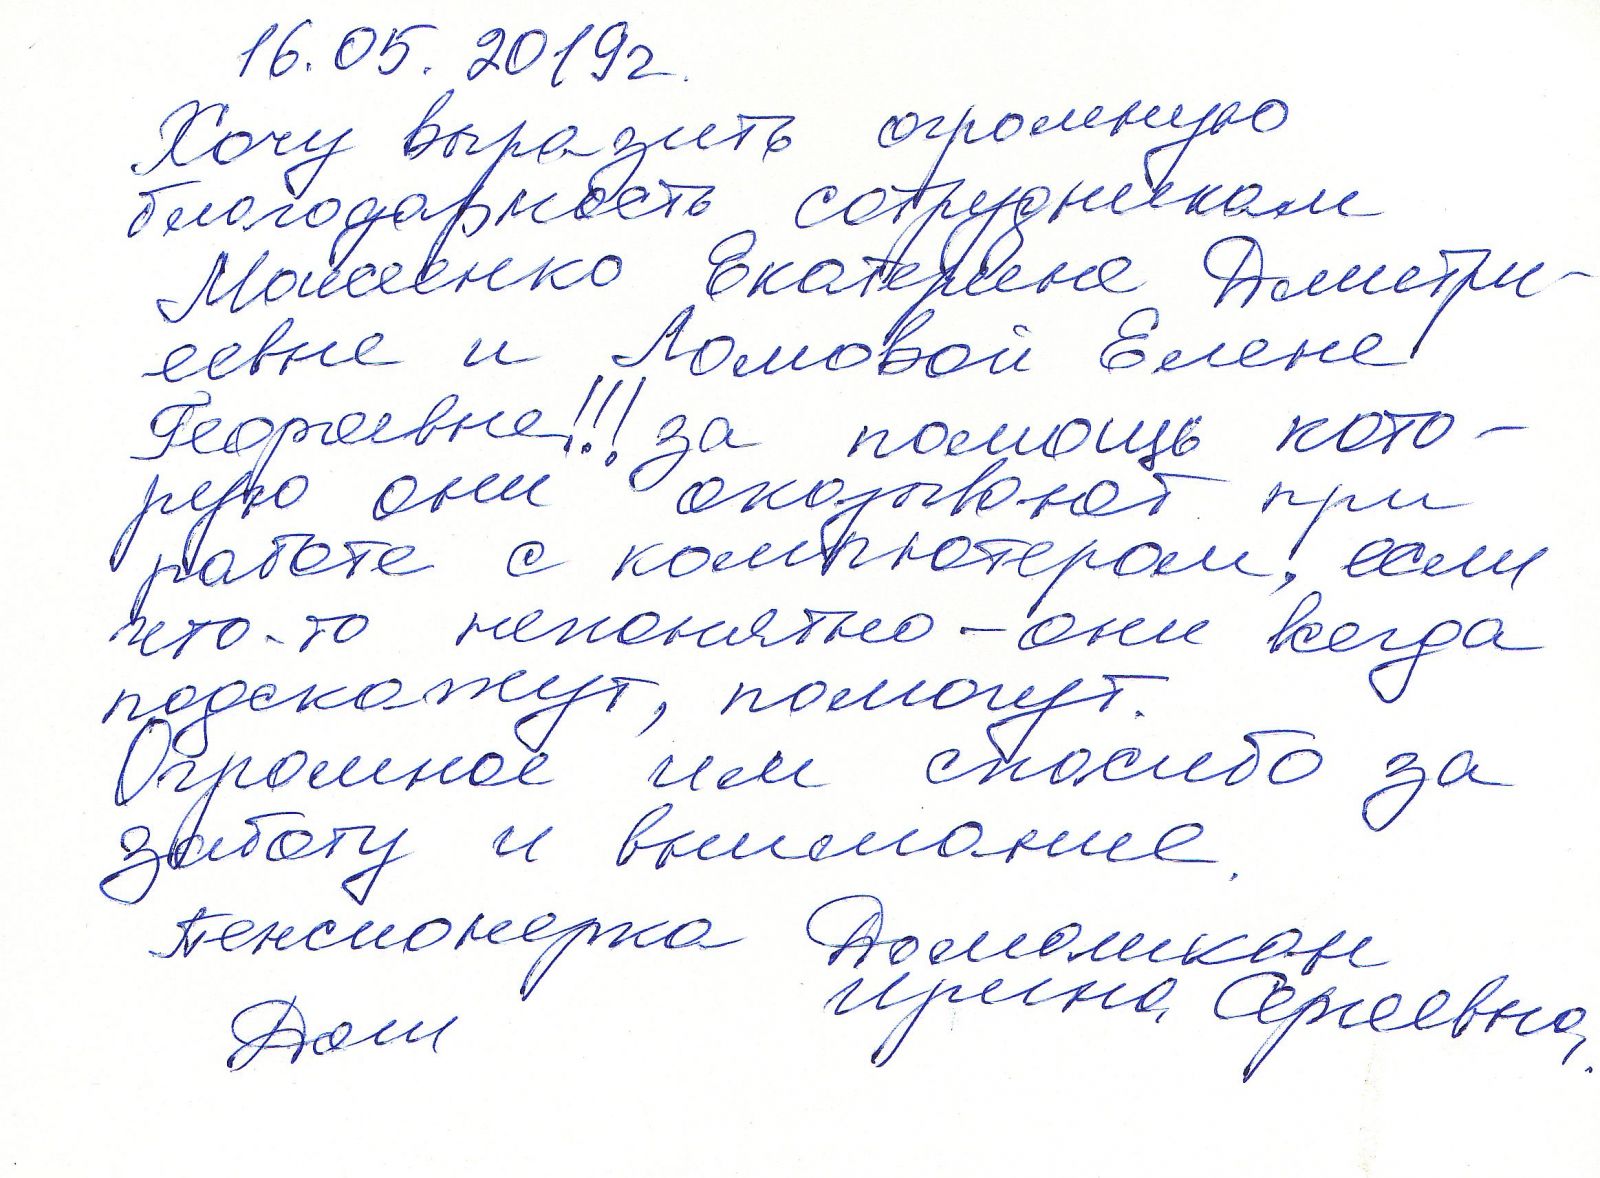 16.05.2019г.
Хочу выразить огромную
благодарность сотрудникам
Екатерине Дмитри-
евне и Ломовой Елене
Георгиевне!!! за помощь кото-
рую они оказывают при
работе с компьютером, если
что-то непонятно - они всегда
подскажут, помогут.
Огромное им спасибо за
заботу и внимание.
Пенсионерка
Ирина Сергеевна.